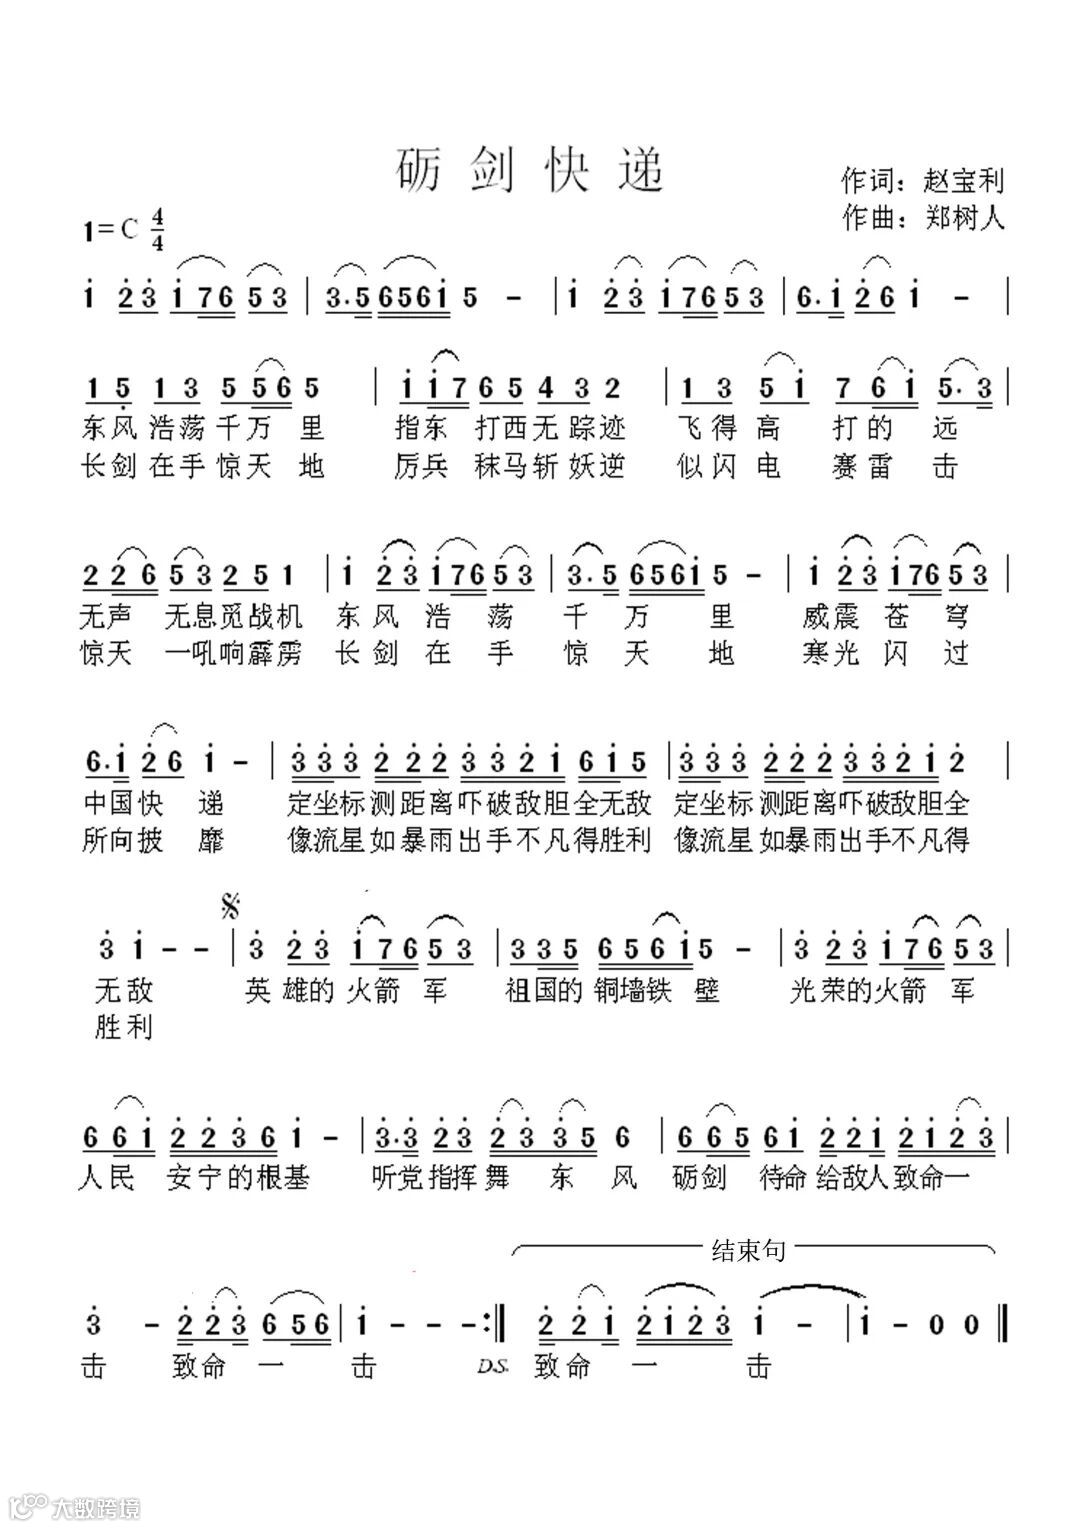 砺剑快递
作词：赵宝利
作曲：郑树人
1=C 4/4
i 2̇3̇ i76 53 | 3·5 656i 5 - | i 2̇3̇ i76 53 | 6·i 2̇6 i - |
1 5̣ 1 3 5 56 5 | i i7 65 4 3 2 | 1 3 5 i 7 6i 5·3 |
东风 浩荡千万 里 指东 打西无踪迹 飞得高 打的 远
长剑在手惊天 地 厉兵 秣马斩妖逆 似闪电 赛雷 击
2 26 53 2 5 1 | i 2̇3̇ i76 53 | 3·5 656i 5 - | i 2̇3̇ i76 53 |
无声 无息觅战机 东风浩荡 千万 里 威震苍穹
惊天 一吼响霹雳 长剑在手 惊天 地 寒光闪过
6·i 2̇6 i - | 3̇3̇3̇ 2̇2̇2̇ 3̇3̇2̇i 6i5 | 3̇3̇3̇ 2̇2̇2̇ 3̇3̇2̇i 2̇ |
中国快 递 定坐标测距离吓破敌胆全无敌 定坐标测距离吓破敌胆全
所向披 靡 像流星如暴雨出手不凡得胜利 像流星如暴雨出手不凡得
3̇ i - - | 3̇ 2̇3̇ i76 53 | 3 35 656i 5 - | 3̇ 2̇3̇ i76 53 |
无敌 英雄的火箭军 祖国的铜墙铁 壁 光荣的火箭 军
胜利
6 6i 2̇2̇3̇6 i - | 3̇·3̇ 2̇3̇ 2̇3̇ 3̇5 6 | 6 65 6i 2̇2̇i 2̇i2̇3̇ |
人民 安宁的根基 听党指挥舞 东 风 砺剑 待命给敌人致命一
结束句
3̇ - 2̇2̇3̇ 656 | i - - - :‖ 2̇2̇i 2̇i2̇3̇ i - | i - 0 0 ‖
击 致命 一 击 D.S. 致命 一 击
大数跨境